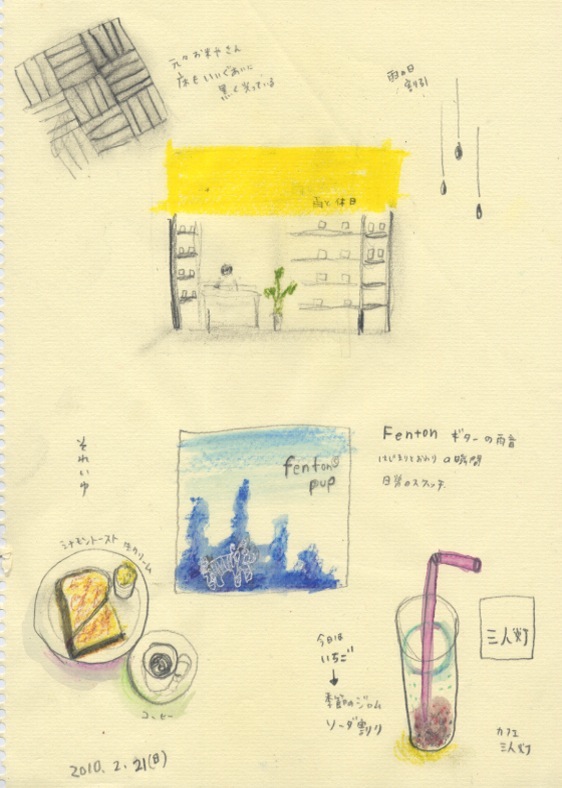 元々お米やさん
床もいいぐあいに
黒く光っている
雨の日
割引
雨と休日
それいゆ
fenton
pup
Fenton ギターの雨音
はじまりとおわりの時間
日常のスケッチ
シナモントースト 生クリーム
コーヒー
今日は
いちご
季節のジャム
ソーダ割り
三人灯
カフェ
三人灯
2010. 2. 21(日)